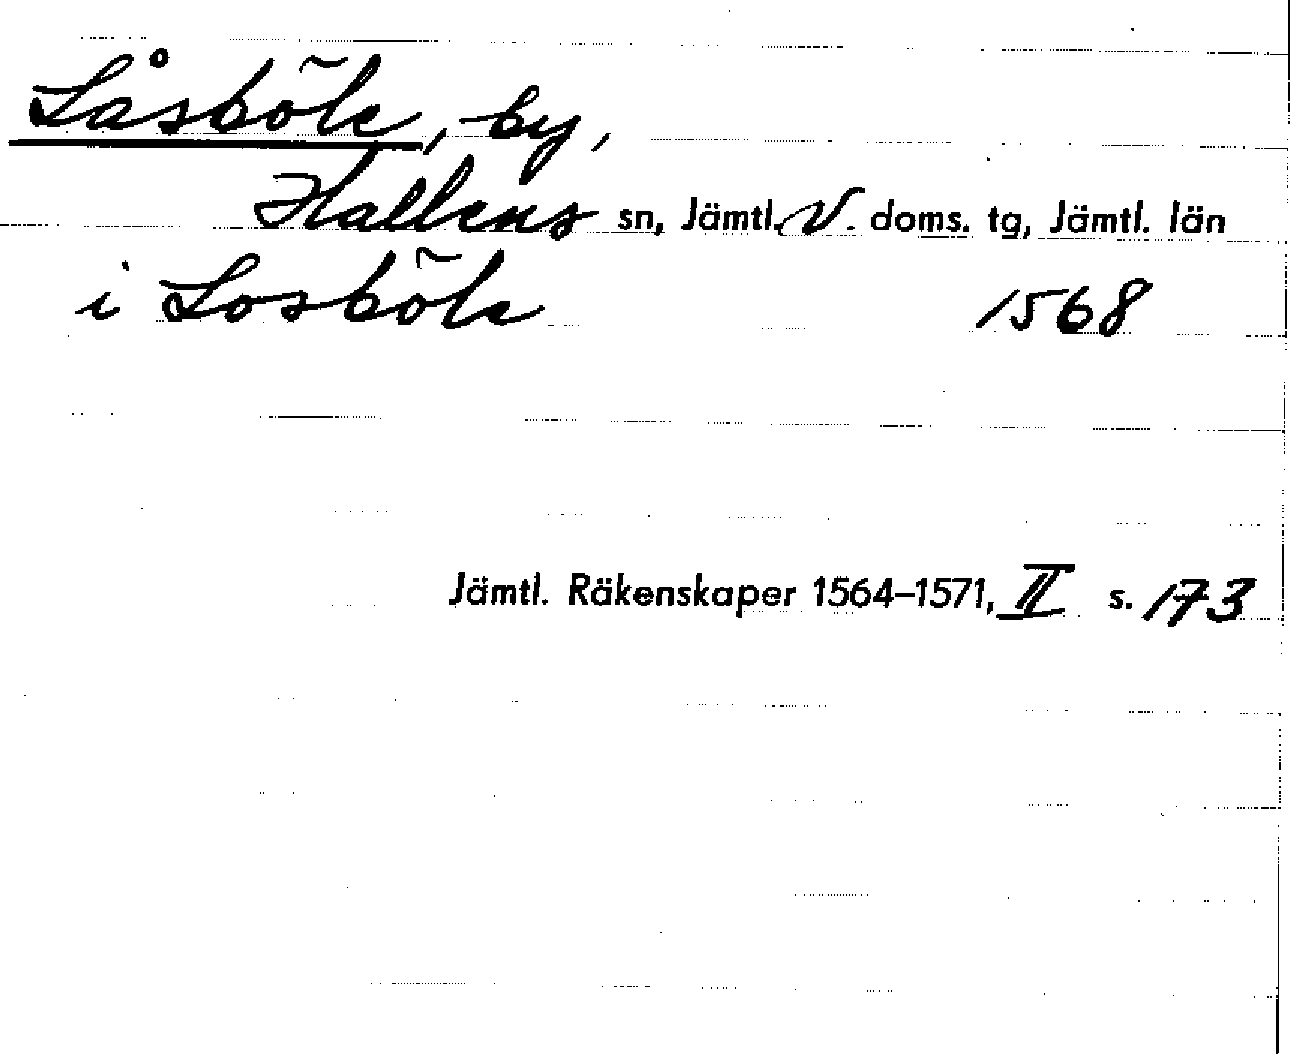 Låsböle, by,
Hallens sn, Jämtl. V. doms. tg, Jämtl. län
i Losböle 1568
Jämtl. Räkenskaper 1564–1571, II s. 173